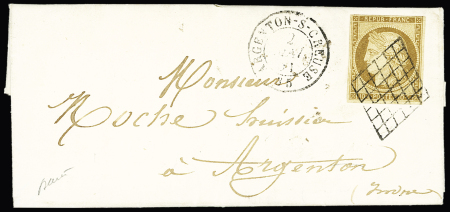 ARGENTON-S-CREUSE
REPUB. FRANC.
Monsieur
Roche huissier
à Argenton
(Indre)